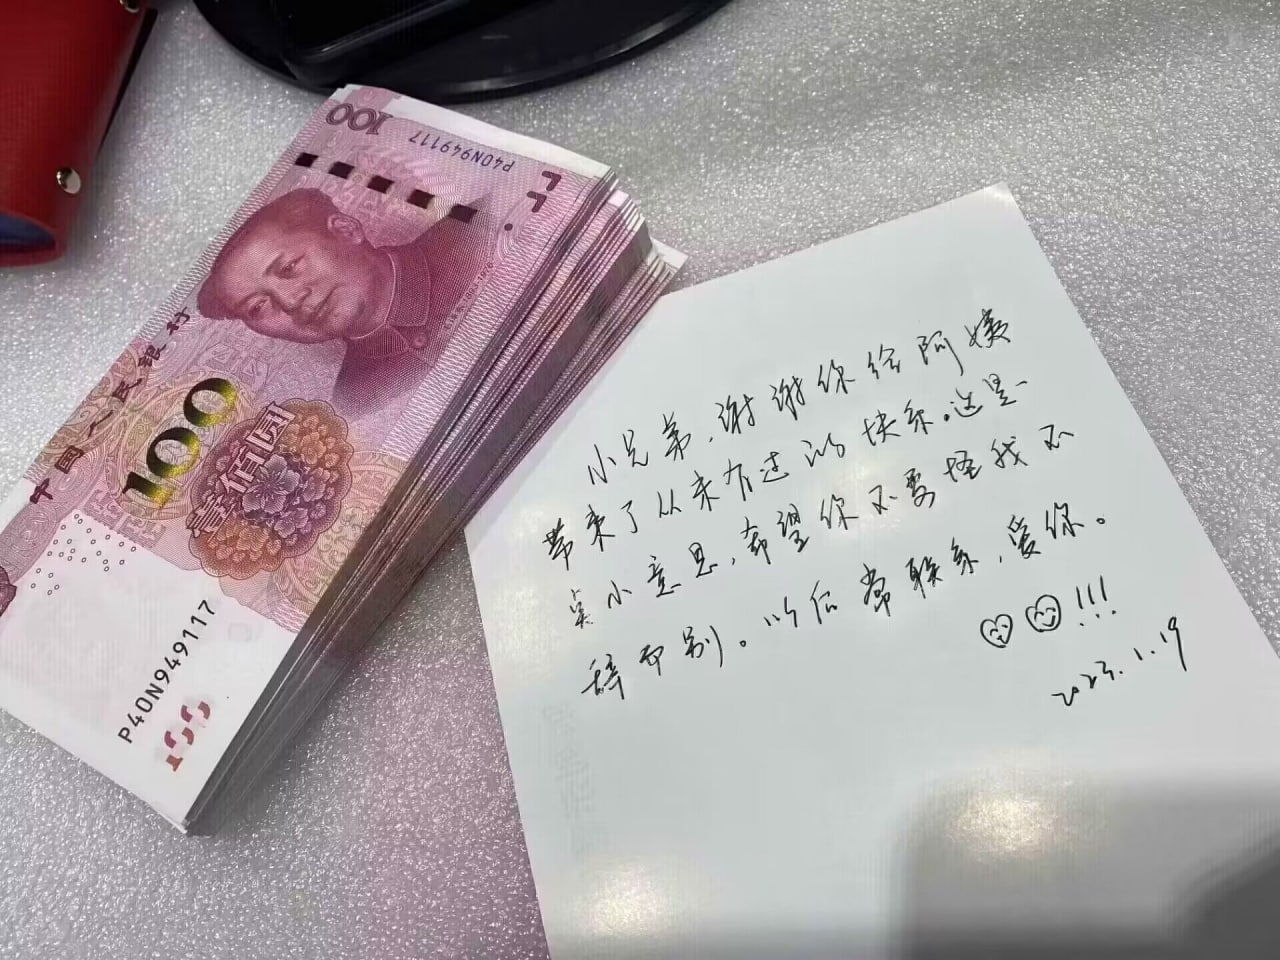 100
P40N949117
中国人民银行
100
壹佰圆
P40N949117
100
小兄弟,谢谢你给阿姨
带来了从来有过的快乐。这是一
点小意思,希望你不要怪我不
辞而别。以后常联系,爱你。
!!!
2023.1.19